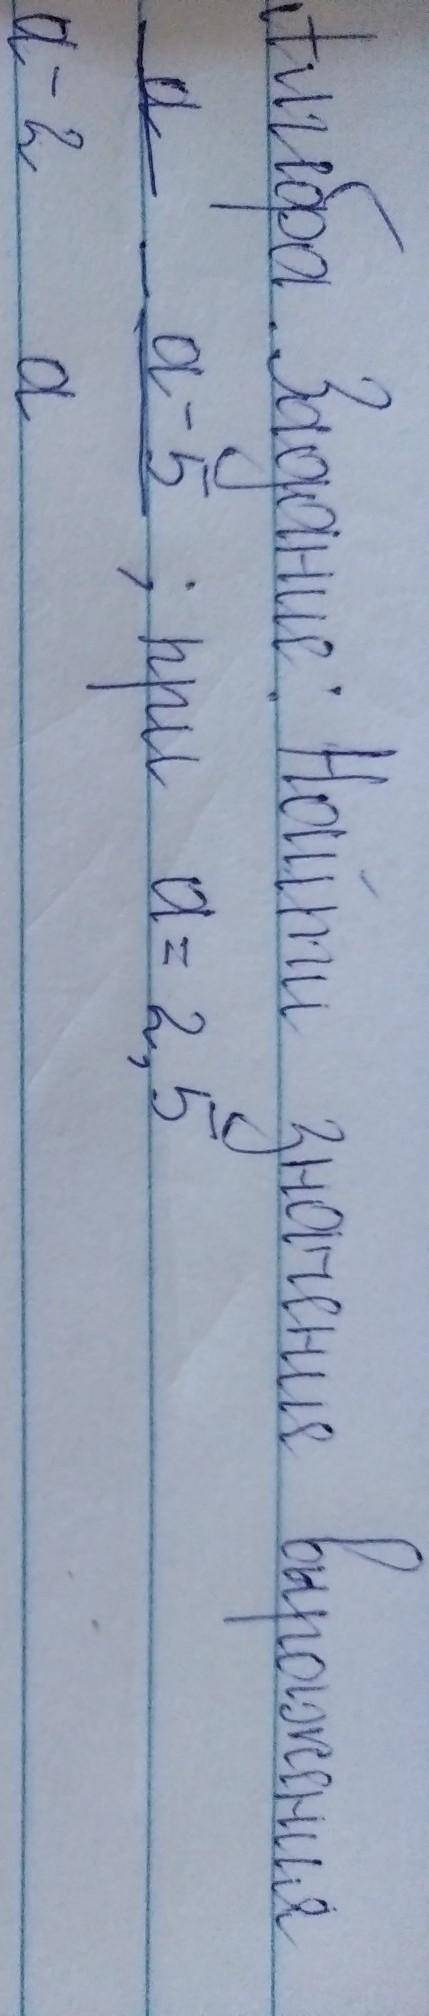 Алгебра. Задание: Найти значение выражения
a/(a-2) - (a-5)/a ; при a = 2,5